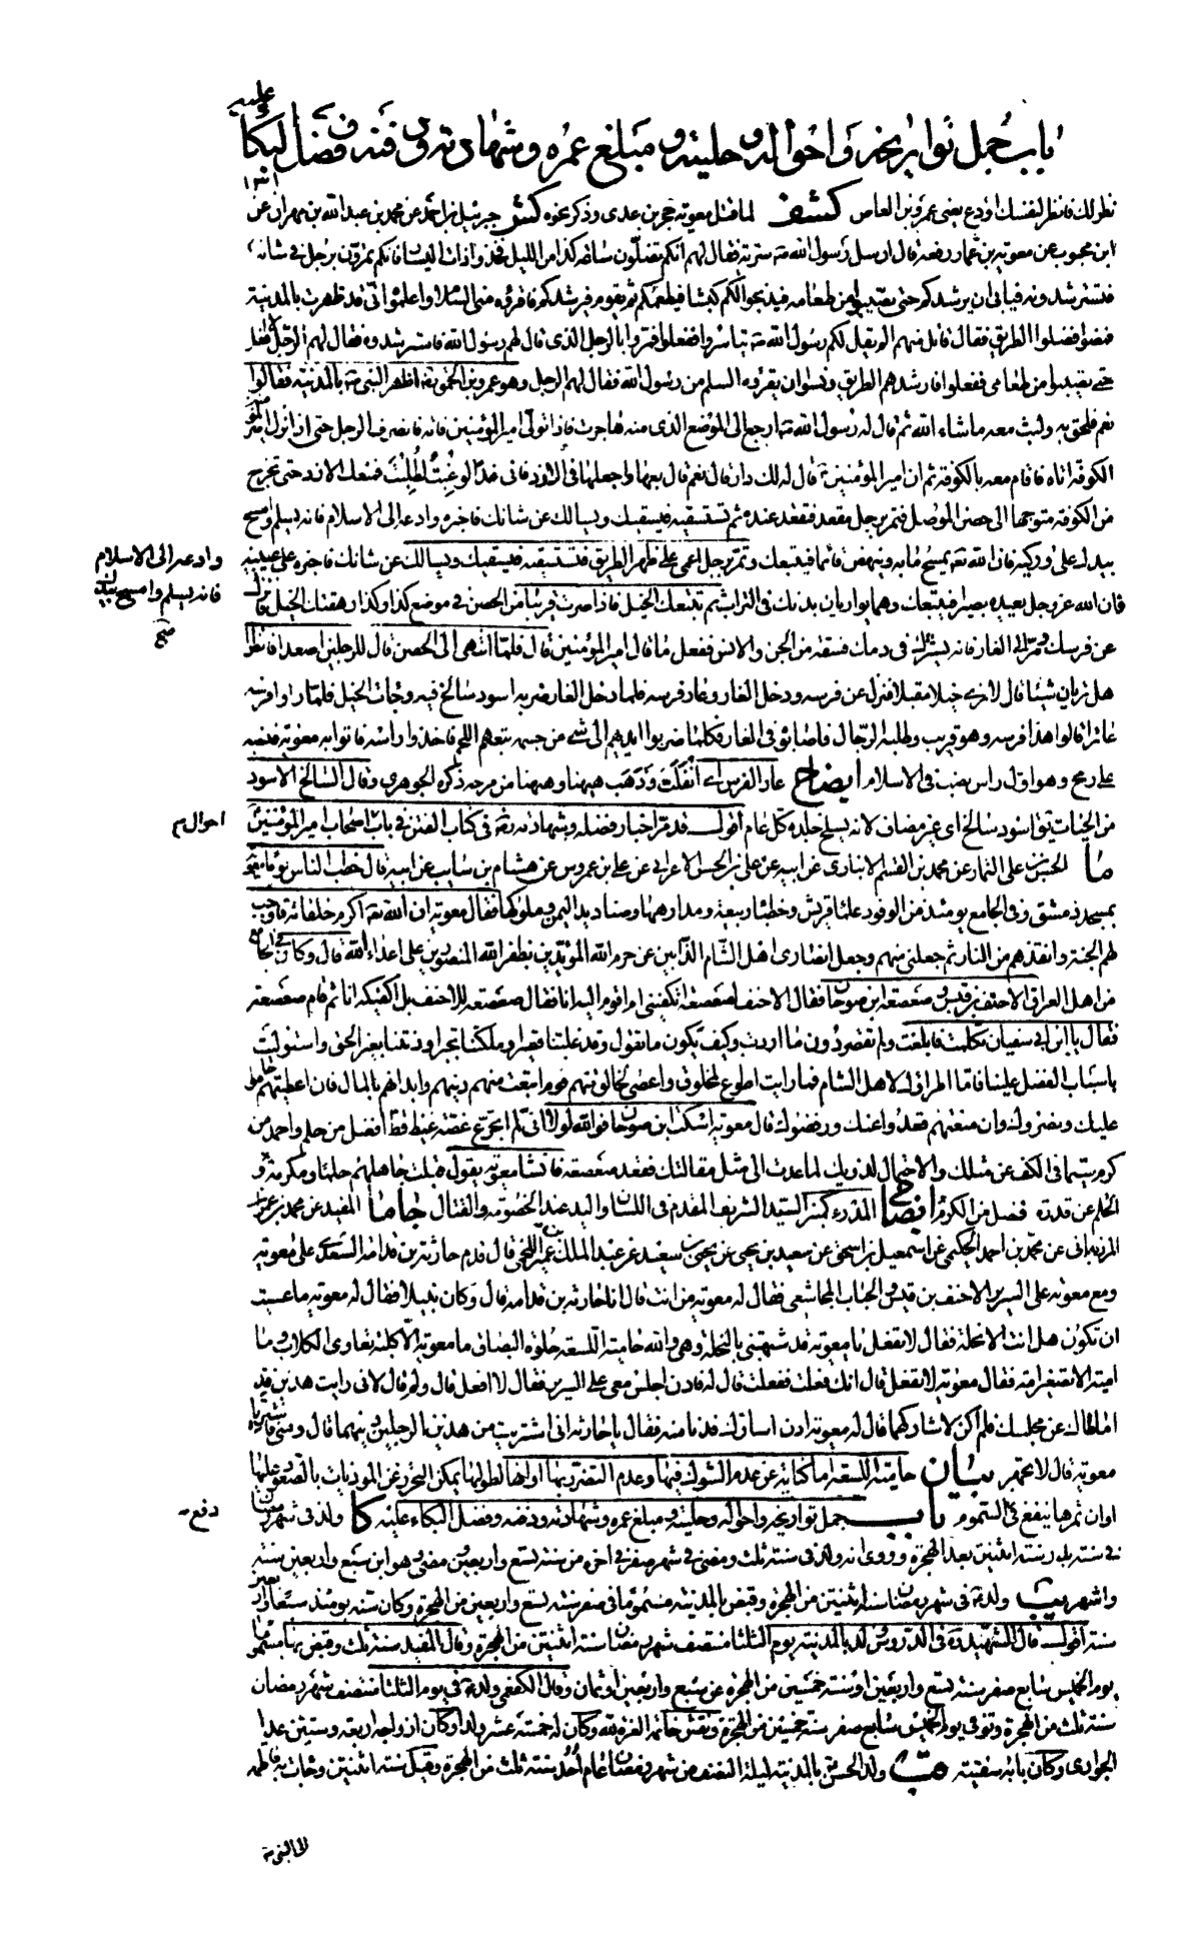 عليه
باب جمل تواريخه و احواله و حليته و مبلغ عمره و شهادته و دفنه و فضل البكاء
نظر لك فانظر لنفسك او دع يعنى عمرو بن العاص كشف لما قتل معوية حجر بن عدى و ذكر نحوه كش جبرئيل بن احمد عن محمد بن عبد الله بن مهران عن
ابن محبوب عن معوية بن عمار رفعه قال ارسل رسول الله ص سرية فقال لهم انكم تضلون ساعة كذا من الليل فخذوا ذات اليسار فانكم تمرون برجل فى شانه
فتسترشدونه فيابى ان يرشدكم حتى تصيبوا من طعامه فيذبح لكم كبشا فيطعمكم ثم يقوم فيرشدكم فاقرؤه منى السلام و اعلموه انى قد ظهرت بالمدينة
فمضوا فضلوا الطريق فقال قائل منهم الم يقل لكم رسول الله ص تياسروا ففعلوا فمروا بالرجل الذى قال لهم رسول الله فاسترشدوه فقال لهم الرجل لا افعل
حتى تصيبوا من طعامى ففعلوا فارشدهم الطريق و نسوا ان يقرؤه السلم من رسول الله فقال لهم الرجل و هو عمرو بن الحمق اظهر النبى ص بالمدينة فقالوا
نعم فلحق به و لبث معه ما شاء الله ثم قال له رسول الله ص ارجع الى الموضع الذى منه هاجرت فاذا تولى امير المؤمنين فاته فانصرف الرجل حتى اذا نزل امير المؤمنين
الكوفة اتاه فاقام معه بالكوفة ثم ان امير المؤمنين قال له لك دار قال نعم قال بعها و اجعلها فى الازد فانى غدا لو غبت لطلبت فمنعك الازد حتى تخرج
من الكوفة متوجها الى حصن الموصل فتمر برجل مقعد فتقعد عنده ثم تستسقيه فيسقيك و يسالك عن شانك فاخبره و ادعه الى الاسلام فانه يسلم و امسح
بيدك على وركيه فان الله يمسح ما به و ينهض قائما فيتبعك و تمر برجل اعمى على ظهر الطريق فتستسقيه فيسقيك و يسالك عن شانك فاخبره على عينيه
و ادعه الى الاسلام
فانه يسلم و امسح بيدك
صح
فان الله عز و جل يعيده بصيرا فيتبعك و هما يواريان بدنك فى التراب ثم تتبعك الخيل فاذا صرت قريبا من الحصن فى موضع كذا و كذا رهقتك الخيل فانزل
عن فرسك و مر الى الغار فانه يشترك فى دمك فسقة من الجن و الانس ففعل ما قال امير المؤمنين قال فلما انتهى الى الحصن قال للرجلين اصعدا فانظرا
هل تريان شيئا قالا نرى خيلا مقبلة فنزل عن فرسه و دخل الغار و عار فرسه فلما دخل الغار ضربه اسود سالخ فيه و جاءت الخيل فلما راوا فرسه
غائرا قالوا هذا فرسه و هو قريب و طلبه الرجال فاصابوه فى الغار فكلما ضربوا ايديهم الى شىء من جسمه تبعهم اللحم فاخذوا راسه فاتوا به معوية فنصبه
على رمح و هو اول راس نصب فى الاسلام ايضاح عار الفرس اى انفلت و ذهب هيهنا و هيهنا من مرحه ذكره الجوهرى و قال السالخ الاسود
من الحيات يقال اسود سالخ اى غير مضاف لانه يسلخ جلده كل عام اقول قد مر اخبار فضله و شهادته فى كتاب الفتن فى باب اصحاب امير المؤمنين
احوال
ما الحسين بن على التمار عن محمد بن القسم الانبارى عن ابيه عن على بن الحسن الاعرابى عن على بن عمروس عن هشام بن سايب عن ابيه قال خطب الناس يوما معوية
بمسجد دمشق و فى الجامع يومئذ من الوفود علماء قريش و خطباء ربيعة و مدارهها و صناديد اليمن و ملوكها فقال معوية ان الله اكرم خلفائه فاوجب
لهم الجنة و انقذهم من النار ثم جعلنى منهم و جعل انصارى اهل الشام الذابين عن حرم الله المؤيدين بظفر الله المنصورين على اعداء الله قال و كان فى الجامع
من اهل العراق الاحنف بن قيس و صعصعة بن صوحان فقال الاحنف لصعصعة اتكفينى ام اقوم اليه انا فقال صعصعة للاحنف بل اكفيكه انا ثم قام صعصعة
فقال يا ابن ابى سفيان تكلمت فابلغت و لم تقصر دون ما اردت و كيف يكون ما تقول و قد غلبتنا قسرا و ملكتنا تجبرا و دنتنا بغير الحق و استوليت
باسباب الفضل علينا فاما اطراؤك لاهل الشام فما رايت اطوع لمخلوق و اعصى لخالق منهم قوم ابتعت منهم دينهم و ابدانهم بالمال فان اعطيتهم حاموا
عليك و نصروك و ان منعتهم قعدوا عنك و رفضوك قال معوية اسكت ابن صوحان فوالله لولا انى لم اتجرع غصة غيظ قط افضل من حلم و احمد من
كرم سيما فى الكف عن مثلك و الاحتمال لذويك لما عدت الى مثل مقالتك فقعد صعصعة فانشا معوية يقول قبلت جاهلهم حلما و مكرمة و
الحلم عن قدرة فضل من الكرم ايضاح المدره كمنبر السيد الشريف المقدم فى اللسان و اليد عند الخصومة و القتال جا ما المفيد عن محمد بن عمران
المرزبانى عن محمد بن احمد الحكيمى عن اسمعيل بن اسحق عن سعيد بن يحيى عن يحيى بن سعيد عن عبد الملك بن عمير اللخمى قال قدم حارثة بن قدامة السعدى على معوية
و مع معوية على السرير الاحنف بن قيس و الحباب المجاشعى فقال له معوية من انت قال انا حارثة بن قدامة قال و كان نبيلا فقال له معوية ما عسيت
ان تكون هل انت الا نحلة فقال لا تفعل يا معوية قد شبهتنى بالنحلة و هى والله حامية اللسعة حلوة البصاق ما معوية الا كلبة تعاوى الكلاب و ما
امية الا تصغير امة فقال معوية لا تفعل قال انك فعلت ففعلت قال له فادن اجلس معى على السرير فقال لا افعل قال و لم قال لانى رايت هذين قد
اماطاك عن مجلسك فلم اكن لاشاركهما قال له معوية ادن اسارك فدنا منه فقال يا حارثة انى اشتريت من هذين الرجلين دينهما قال و منى فاشتر يا
معوية قال لا تجهر بيان حامية اللسعة
اوان ثمرها ينفع فى السموم باب جمل تواريخه و احواله و حليته و مبلغ عمره و شهادته و دفنه و فضل البكاء عليه كا ولد فى شهر رمضان
دفع
فى سنة بدر سنة اثنتين بعد الهجرة و روى انه ولد فى سنة ثلث و مضى فى شهر صفر فى اخره من سنة تسع و اربعين و مضى و هو ابن سبع و اربعين سنة
و اشهر يب ولد فى شهر رمضان سنة اثنتين من الهجرة و قبض بالمدينة مسموما فى صفر سنة تسع و اربعين من الهجرة و كان سنه يومئذ سبعا و اربعين
سنة اقول قال الشهيد ره فى الدروس ولد بالمدينة يوم الثلثا منتصف شهر رمضان سنة اثنتين من الهجرة و قال المفيد سنة ثلث و قبض بها مسموما
يوم الخميس سابع صفر سنة تسع و اربعين او سنة خمسين من الهجرة عن سبع و اربعين او ثمان و قال الكفعمى ولد فى يوم الثلثا منتصف شهر رمضان
سنة ثلث من الهجرة و توفى يوم الخميس سابع صفر سنة خمسين من الهجرة و نقش خاتمه العزة لله و كان له خمسة عشر ولدا و كان ازواجه اربعة و ستين عدا
الجوارى و كان بابه سفينة قب ولد الحسن بالمدينة ليلة النصف من شهر رمضان عام احد سنة ثلث من الهجرة و قيل سنة اثنتين و جاءت به فاطمة
الى النبى ص